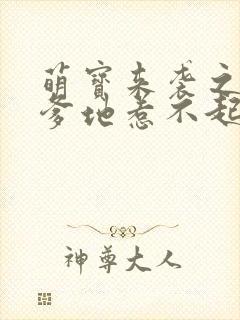 萌宝来袭之
爹地惹不起
神尊大人